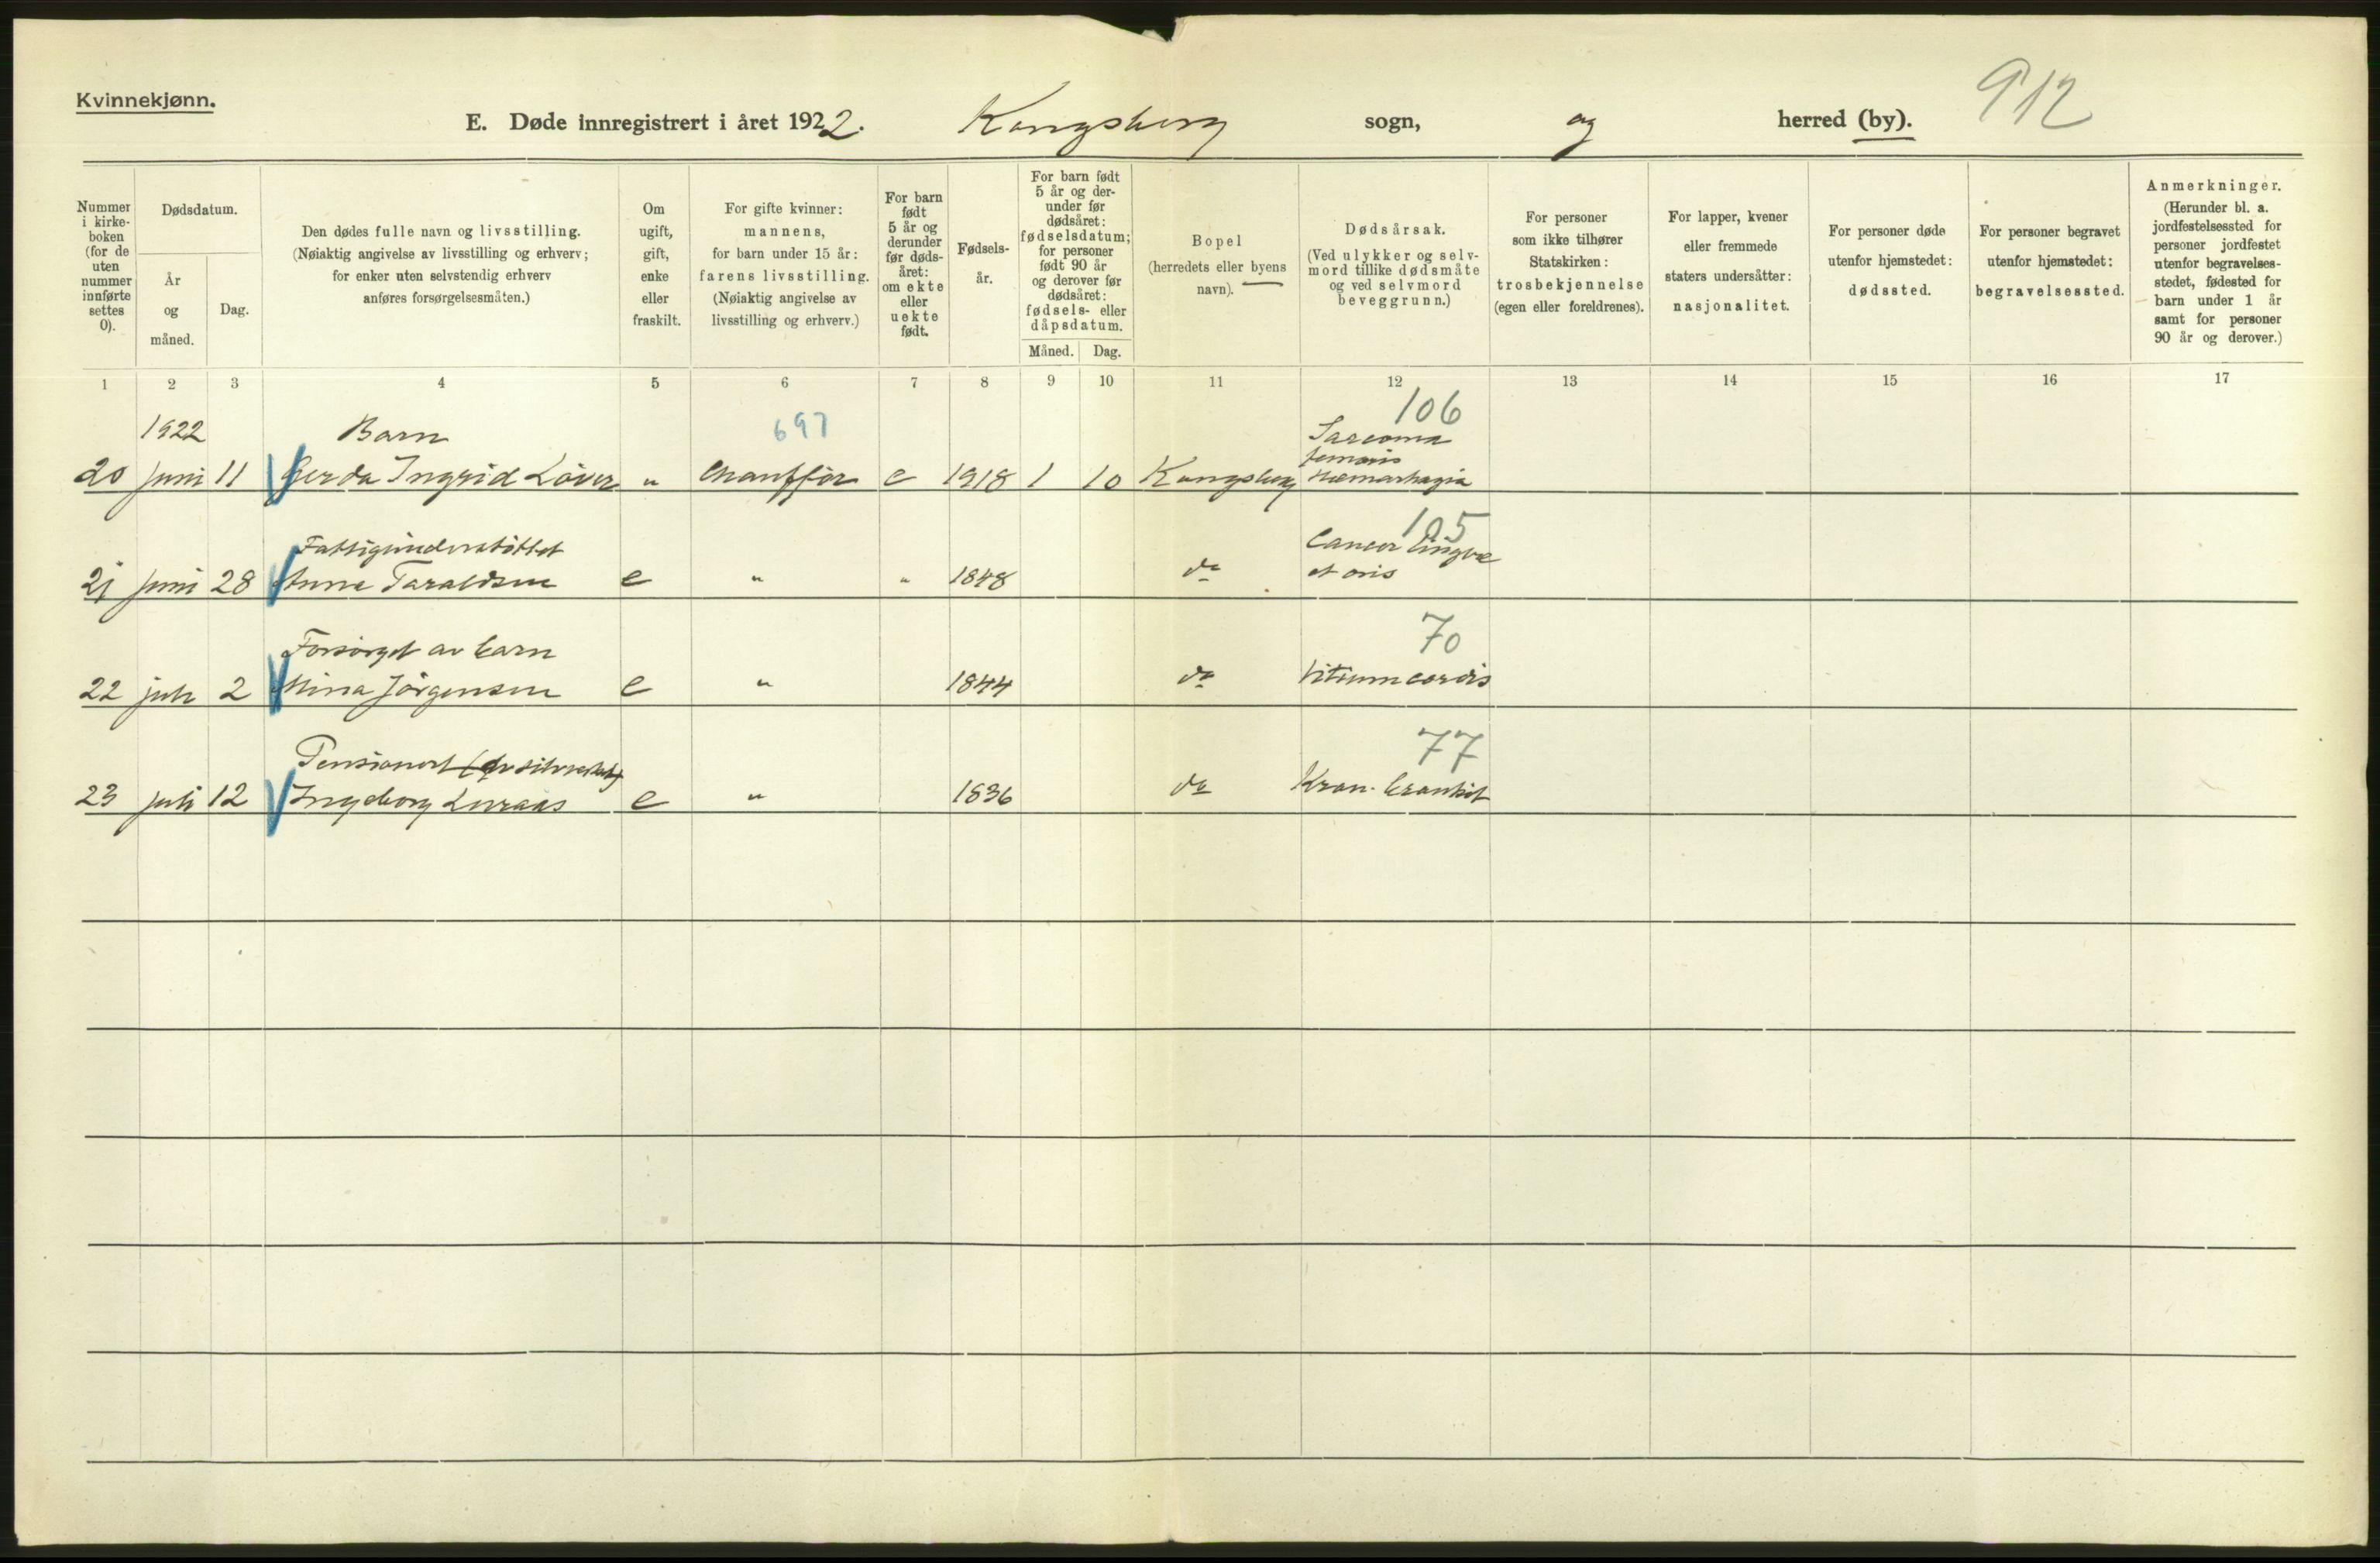 Kvinnekjønn.
912
E. Døde innregistrert i året 1922. Kongsberg sogn, og herred (by).
Nummer i kirke-boken (for de uten nummer innførte settes 0).
Dødsdatum.
År og måned.
Dag.
Den dødes fulle navn og livsstilling.
(Nøiaktig angivelse av livsstilling og erhverv;
for enker uten selvstendig erhverv
anføres forsørgelsesmåten.)
Om ugift, gift, enke eller fraskilt.
For gifte kvinner:
mannens,
for barn under 15 år:
farens livsstilling.
(Nøiaktig angivelse av
livsstilling og erhverv.)
For barn født 5 år og derunder før døds-året: om ekte eller uekte født.
Fødsels-år.
For barn født
5 år og der-
under før
dødsåret:
fødselsdatum;
for personer
født 90 år
og derover før
dødsåret:
fødsels- eller
dåpsdatum.
Måned. Dag.
Bopel
(herredets eller byens
navn).
Dødsårsak.
(Ved ulykker og selv-
mord tillike dødsmåte
og ved selvmord
beveggrunn.)
For personer
som ikke tilhører
Statskirken:
trosbekjennelse
(egen eller foreldrenes).
For lapper, kvener
eller fremmede
staters undersåtter:
nasjonalitet.
For personer døde
utenfor hjemstedet:
dødssted.
For personer begravet
utenfor hjemstedet:
begravelsessted.
Anmerkninger.
(Herunder bl. a.
jordfestelsessted for
personer jordfestet
utenfor begravelses-
stedet, fødested for
barn under 1 år
samt for personer
90 år og derover.)
1 2 3 4 5 6 7 8 9 10 11 12 13 14 15 16 17
1922 Barn 697 106
Sarcoma
femoris
20 juni 11 Gerda Ingrid Löver " Chauffør e 1918 1 10 Kongsberg Hæmorhagia
105
Fattigunderstöttet Cancer lingvæ
21 juni 28 Anne Taraldsen e " " 1848 do et oris
70
Forsörget av barn
22 juli 2 Mina Jörgensen e " 1844 do Vitium cordis
77
Pensionert
23 juli 12 Ingeborg Luraas e " 1836 do Kron. bronkit